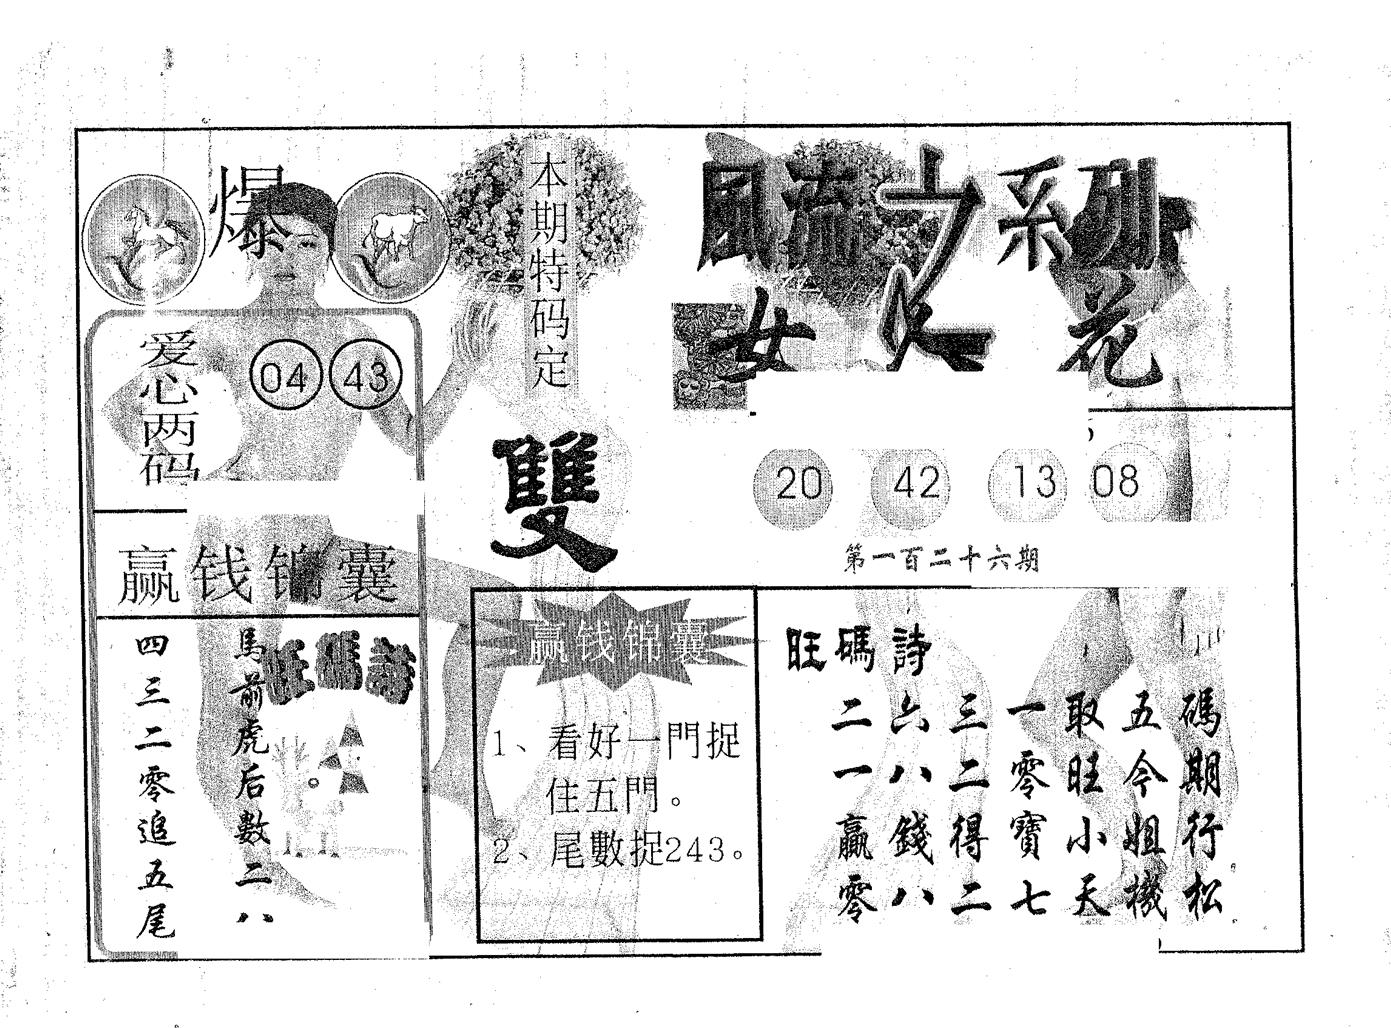 爆
本期特码定
雙
風流之系列
女人花
爱心两码
04 43
赢钱锦囊
旺碼詩
馬前虎后數二八
四三二零追五尾
赢钱锦囊
1、看好一門捉
住五門。
2、尾數捉243。
20 42 13 08
第一百二十六期
旺碼詩
二六三一取五碼
一八二零旺今期
贏錢得寶小姐行
零八二七天機松